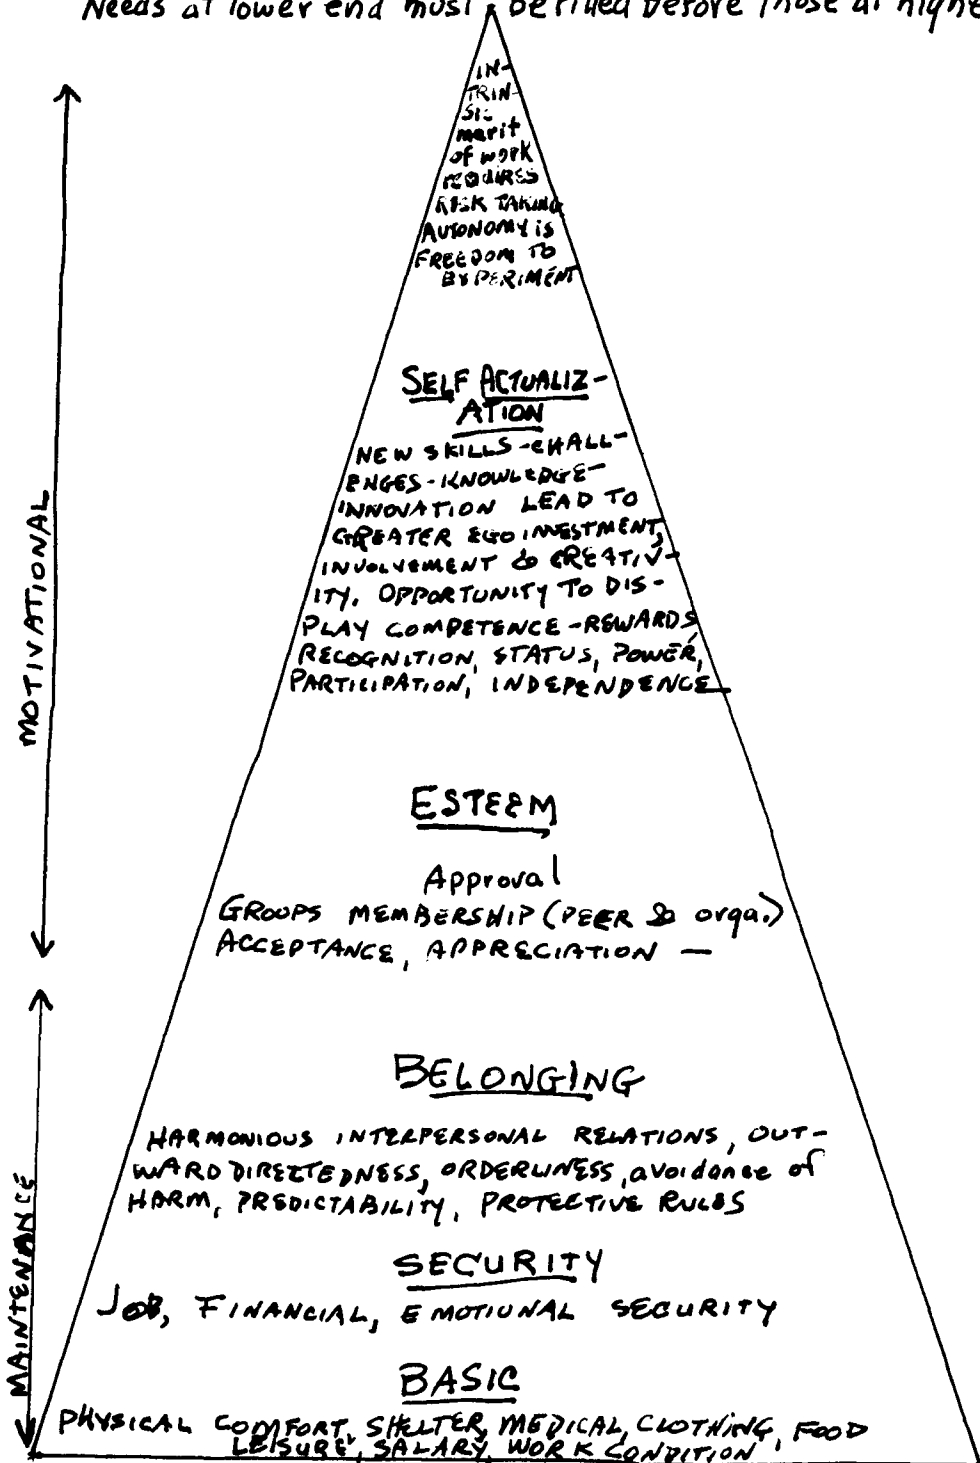 Needs at lower end must be filled before those at highe
IN-
TRIN-
SIC
merit
of work
REQUIRES
RISK TAKING
AUTONOMY is
FREEDOM TO
EXPERIMENT
SELF ACTUALIZ-
ATION
NEW SKILLS-CHALL-
ENGES-KNOWLEDGE-
INNOVATION LEAD TO
GREATER EGO INVESTMENT,
INVOLVEMENT & CREATIV-
ITY. OPPORTUNITY TO DIS-
PLAY COMPETENCE-REWARDS,
RECOGNITION, STATUS, POWER,
PARTICIPATION, INDEPENDENCE
MOTIVATIONAL
ESTEEM
Approval
GROUPS MEMBERSHIP (PEER & orga.)
ACCEPTANCE, APPRECIATION —
BELONGING
HARMONIOUS INTERPERSONAL RELATIONS, OUT-
WARD DIRECTEDNESS, ORDERLINESS, avoidance of
HARM, PREDICTABILITY, PROTECTIVE RULES
MAINTENANCE
SECURITY
JOB, FINANCIAL, EMOTIONAL SECURITY
BASIC
PHYSICAL COMFORT, SHELTER, MEDICAL, CLOTHING, FOOD
LEISURE, SALARY, WORK CONDITION